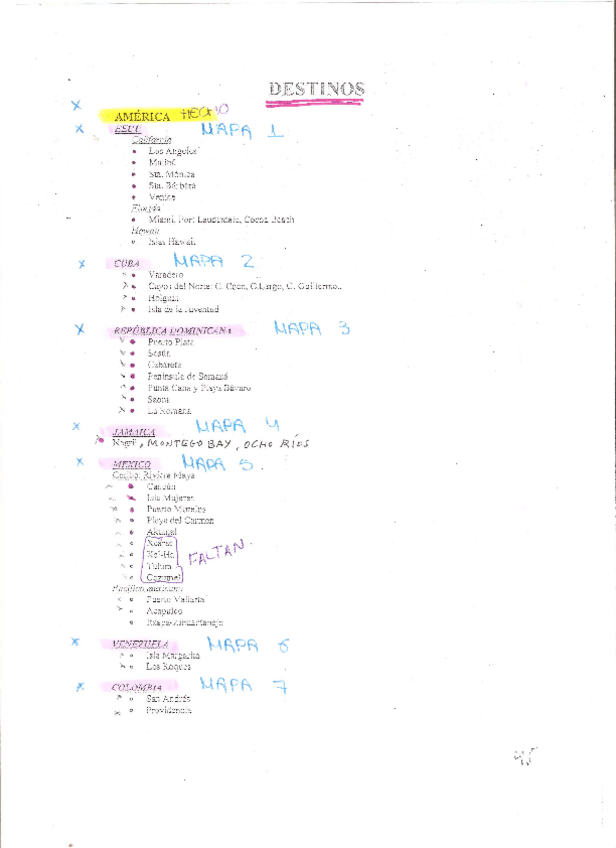 DESTINOS
AMÉRICA HECHO
EEUU MAPA 1
California
Los Angeles
Malibú
Sta. Mónica
Sta. Bárbara
Venice
Florida
Miami, Fort Lauderdale, Cocoa Beach
Hawaii
Islas Hawaii
CUBA MAPA 2
Varadero
Cayos del Norte: C. Coco, C.Largo, C. Guillermo..
Holguín
Isla de la Juventud
REPÚBLICA DOMINICANA MAPA 3
Puerto Plata
Sosúa
Cabarete
Península de Samaná
Punta Cana y Playa Bávaro
Saona
La Romana
JAMAICA MAPA 4
Negril, MONTEGO BAY, OCHO RÍOS
MEXICO MAPA 5.
Caribe: Riviera Maya
Cancún
Isla Mujeres
Puerto Morelos
Playa del Carmen
Akumal
Xcaret
Xel-Ha FALTAN.
Tulum
Cozumel
Pacífico mexicano
Puerto Vallarta
Acapulco
Ixtapa-Zihuatanejo
VENEZUELA MAPA 6
Isla Margarita
Los Roques
COLOMBIA MAPA 7
San Andrés
Providencia
45